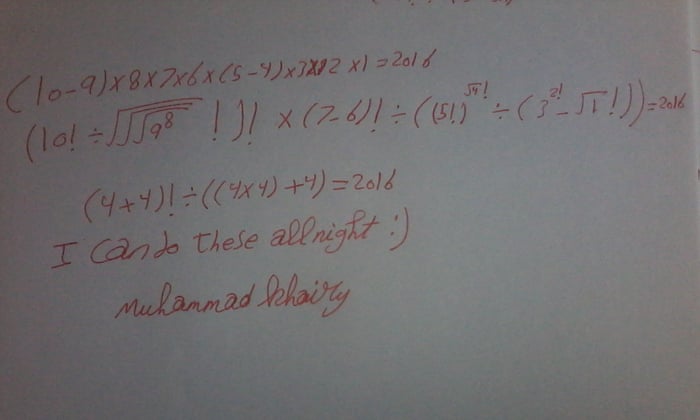 (10-9)×8×7×6×(5-4)×3×2×1=2016
(10!÷√√√9⁸ !)! ×(7-6)!÷((5!)^√4! ÷(3^2!-√1!))=2016
(4+4)!÷((4×4)+4)=2016
I can do these all night :)
Muhammad Khairy